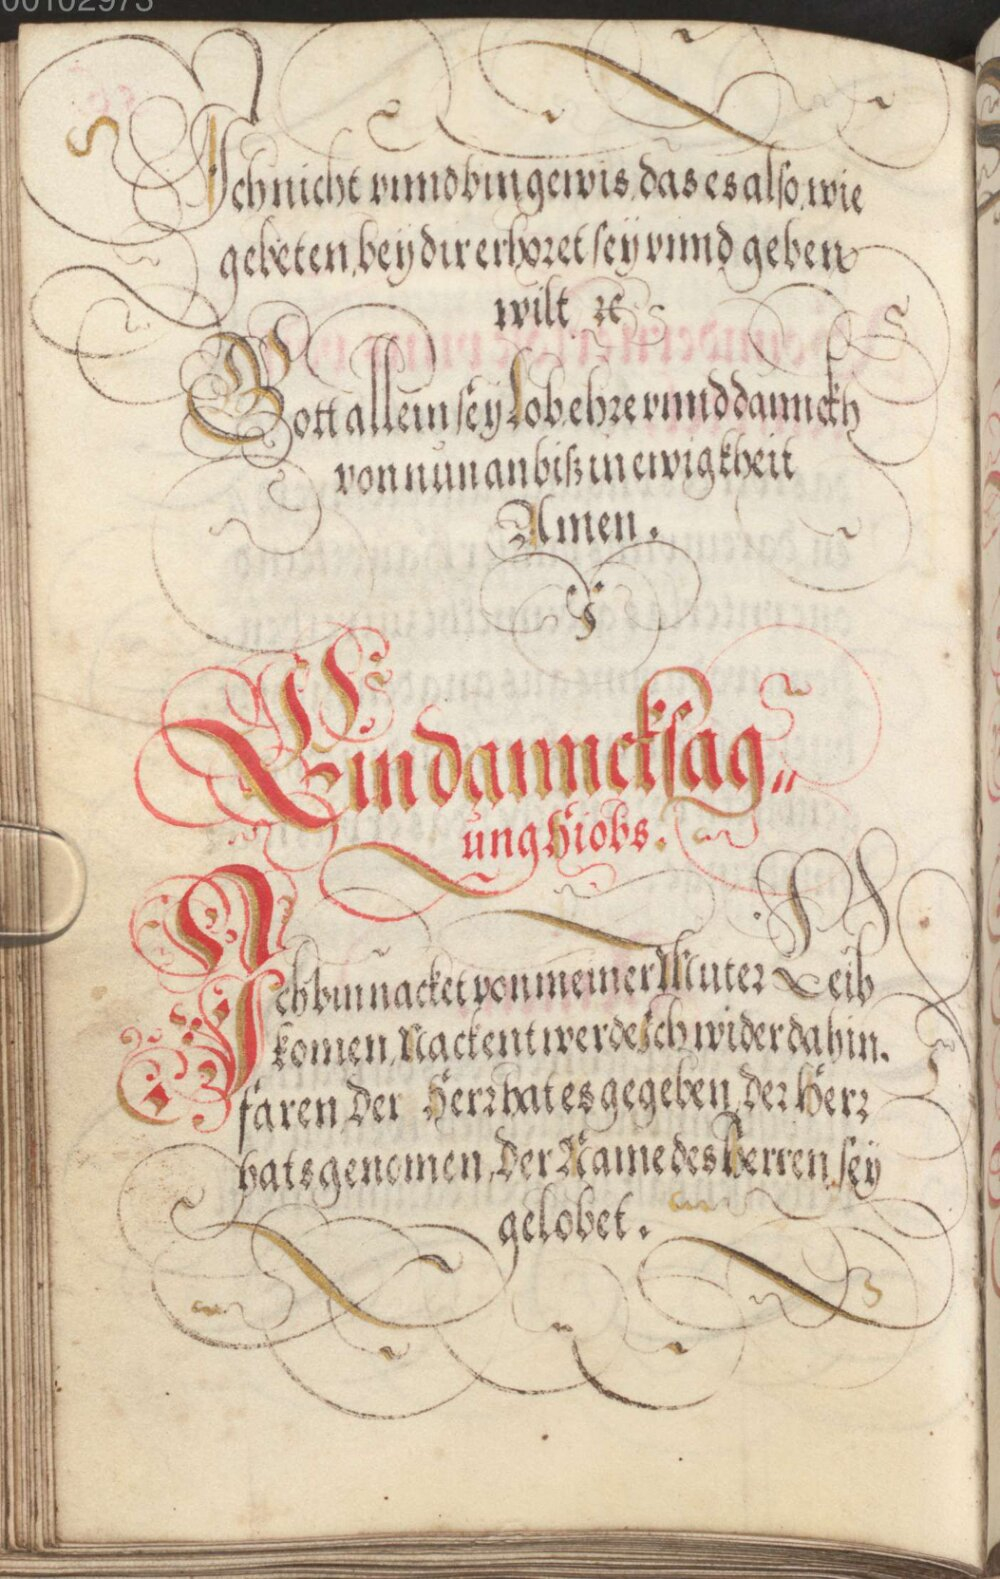 00102973
Ich nicht vnnd bin gewis, das es also, wie
gebeten, beÿ dir erhoret seÿ vnnd geben
wilt ꝛc
Gott allein seÿ Lob, ehre vnnd dannckh
von nun an biß in ewigkheit
Amen.
Ein dannncksag„
ung Hiobs.
Ich bin nacket von meiner Muter Leib
komen, Nackent werde Ich wider dahin.
faren Der Herr hat es gegeben, Der Herr
hats genomen, Der Name des Herren seÿ
gelobet.